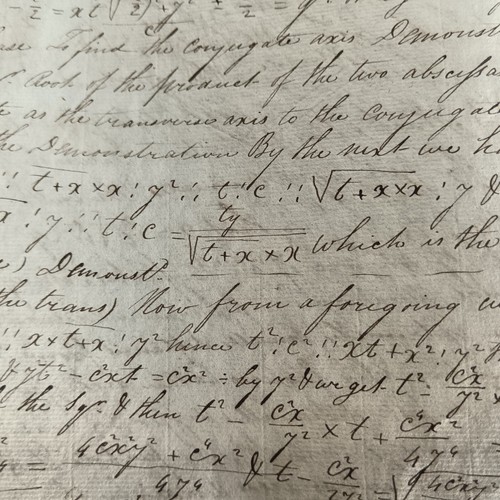 = xt √ 2) + y² ± =
To find the conjugate axis Demonst
Root of the product of the two abscissa
as the transverse axis to the conjugate
the Demonstration By the next we ha
:: t+x×x : y² :: t : c :: √t+x×x : y &
: y :: t : c = ty/√t+x×x which is the
) Demonst.
the trans) Now from a foregoing
:: x×t+x : y² hence t² : c² :: xt+x² : y²
& y²t² - c²xt = c²x² ÷ by y² & we get t² - c²x/y² ×
the sqr & then t² - c²x/y² × t + c⁴x²/4y⁴
= 4c²x²y² + c⁴x²/4y⁴ & t - c²x/2y² = √4c²x²y